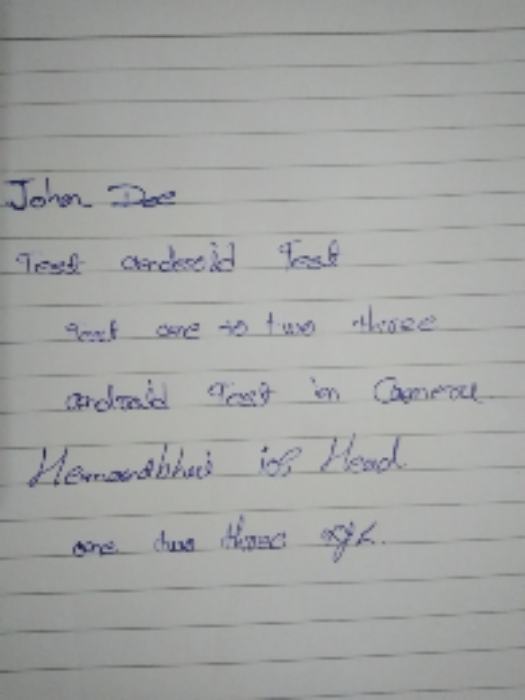 John Doe
Test android Test
test one to two three
android Test in Camera
Hemandbhai ios Head
one two three